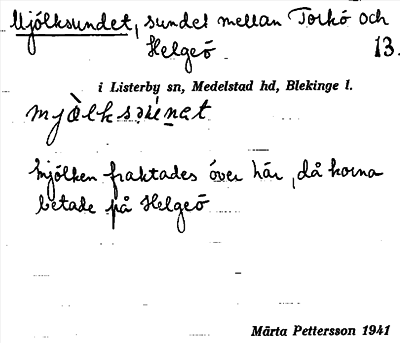 Mjölksundet, sundet mellan Torkö och
Helgeö 13.
i Listerby sn, Medelstad hd, Blekinge l.
Mjölken fraktades över här, då korna
betade på Helgeö
Märta Pettersson 1941